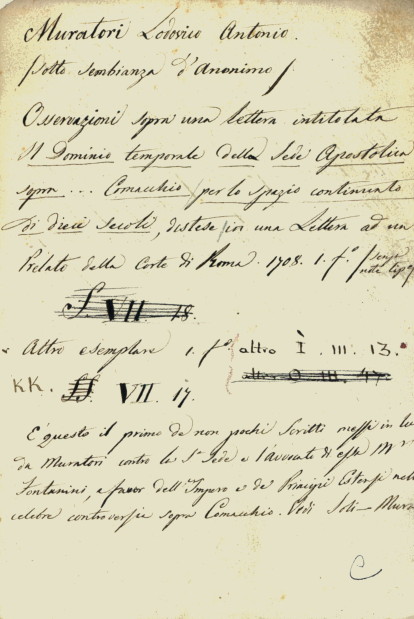 Muratori Lodovico Antonio.
(sotto sembianza d'Anonimo)
Osservazioni sopra una lettera intitolata
Il Dominio temporale della Sede Apostolica
sopra ... Comacchio per lo spazio continuato
di dieci secoli, distese in una Lettera ad un
Prelato della Corte di Roma. 1708. 1. f.º (senza
note tip.
S. VII. 18.
Altro esemplare 1. f.º altro I. III. 13.
KK. SS. VII. 17.
È questo il primo de non pochi scritti messi in lu
da Muratori contro la S. Sede e l'avvocato di essa Mr
Fontanini, a favor dell'Impero e de Principi Estensi nel
celebre controversia sopra Comacchio. Vedi Soli-Mura
C